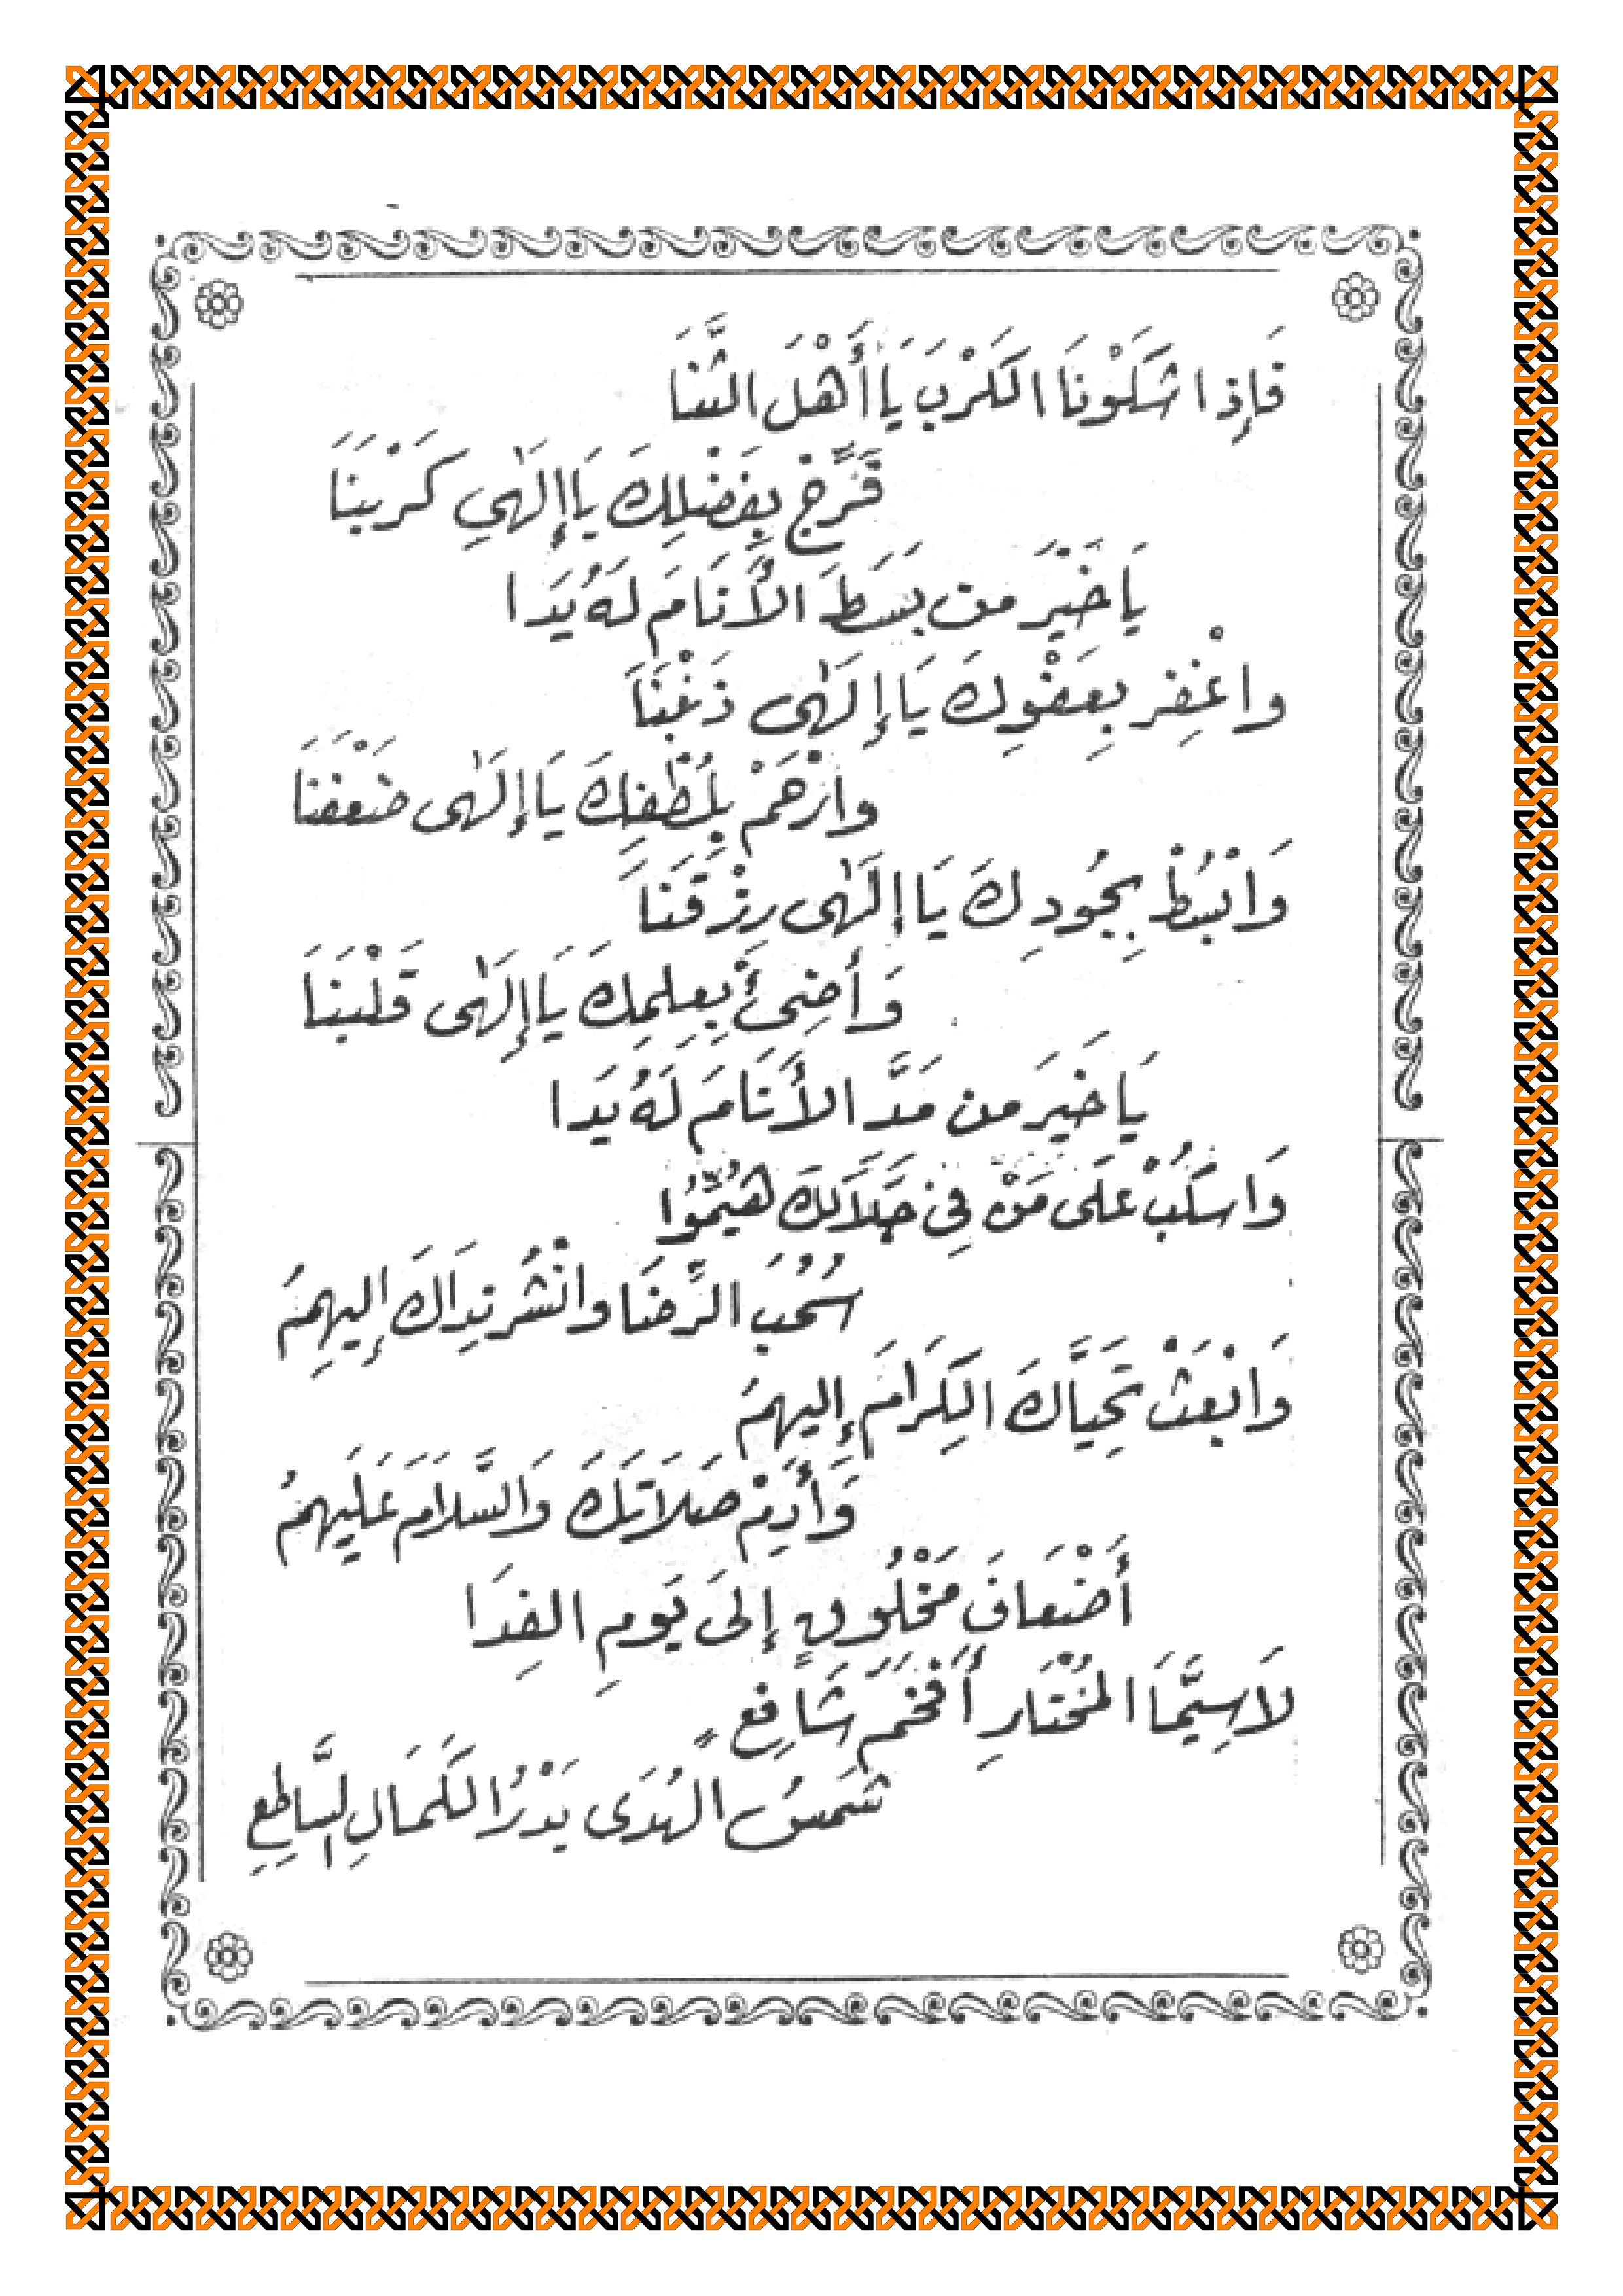 فَإِذا شَكَوْنَا الكَرْبَ يَا أَهْلَ الثَّنَا
فَرَّجْ بِفَضْلِكَ يَا إِلَهِي كَرْبَنَا
يَا خَيْرَ من بَسَطَ الأَنَامَ لَهُ يَدَا
واغْفِر بِعَفْوِكَ يَا إِلَهَى ذَنْبَنَا
وارْحَمْ بِلُطْفِكَ يَا إِلَهَى ضَعْفَنَا
وَابْسُطْ بِجُودِكَ يَا إلَهَى رِزْقَنَا
وَأَضِئْ بِعِلمِكَ يَا إِلَهَى قَلْبَنَا
يَا خَيرَ من مَدَّ الأَنَامَ لَهُ يَدَا
وَاسكُبْ عَلَى مَنْ فِي جَلاَلكَ هُيِّمُوا
سُحُبَ الرِّضَا وانْشُر نِدَاكَ إِليهِمُ
وَابْعَثْ تَحِيَّاكَ الكِرَامَ إِليهمُ
وَأَدِمْ صَلاَتَكَ وَالسَّلاَمَ عَلَيهِمُ
أَضْعَافَ مَخْلُوقٍ إِلىَ يَومِ الفِدَا
لاَسِيَّمَا المُخْتَارِ أَفْخَمَ شَافِعٍ
شَمسُ الهُدَى بَدْرُ الكَمَالِ السَّاطِعِ